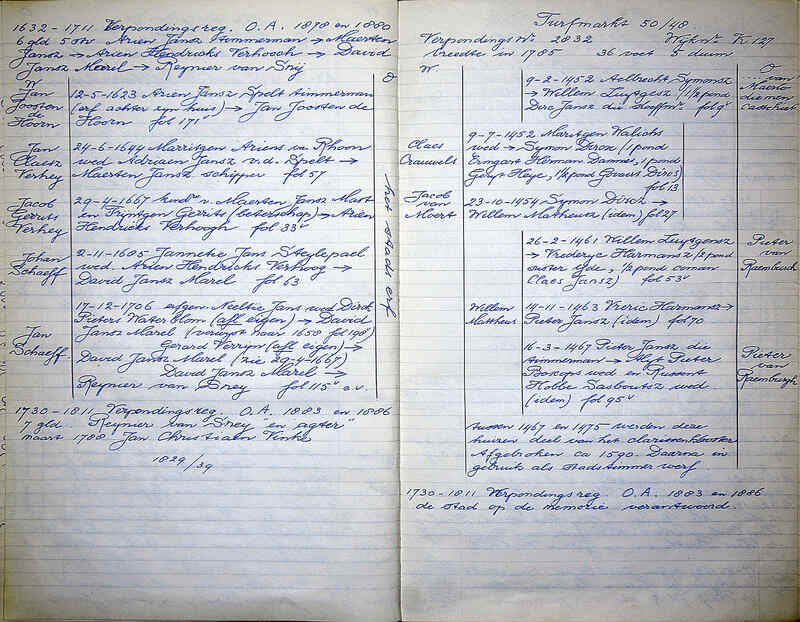 1632 - 1711 Verpondingsreg. O.A. 1878 en 1880
6 gld 5 sts Arien Jansz timmerman → Maerten
Jansz → Arien Hendricks Verhooch → David
Jansz Marel → Reynier van Snij
W O
Jan Joosten de Hoorn
12-5-1623 Arien Jansz Spelt timmerman
(erf achter zyn huis) → Jan Joosten de
Hoorn fol 171v
Jan Claesz Verhey
24-6-1644 Marritgen Ariens van Rhoon
wed Adriaen Jansz v.d. Spelt →
Maerten Jansz schipper fol 57
Jacob Gerrits Verhey
29-4-1667 kindn v. Maerten Jansz Mast
en Tryntgen Gerrits (beterschap) → Arien
Hendricks Verhoogh fol 33v
Johan Schaeff
2-11-1685 Janneke Jans Steylepael
wed. Arien Hendricks Verhoog →
David Jansz Marel fol 63
17-12-1706 erfgen Neeltie Jans wed Dirck
Pieters
Jan Schaeff
Jansz Marel (verwijst naar 1658 fol 198v)
Gerard Verryn (afl eigen) →
David Jansz Marel (zie 29-4-1667)
David Jansz Marel →
Reynier van Sney fol 115v e.v.
het stads erf
1730 - 1811 Verpondingsreg. O.A. 1883 en 1886
7 gld Reynier van Sney "en agter"
maart 1788 Jan Christiaen Vinke
1829/39
Turfmarkt 50/48
Verpondings No 2832 Wyk no K 127
breedte in 1785 36 voet 5 duim
W. O
9-2-1452 Aelbrecht Symonsz
→ Willem Luytgesz 1/2 pond
Dirc Jansz die fol 9v
van
Claes Crauwels
9-7-1452 Maritgen
wed → Symon Dircx (1 pond
Ermgart Herman Dammer, 1 pond
Geryt Heye, 1/2 pond Govaus Dircs)
fol 13
Jacob van Moert
23-10-1454 Symon Dircz →
Willem Matheusz (idem) fol 27
26-2-1461 Willem Luytgensz
→ Vrederyc Harmansz 1/2 pond
suster 1/2 pond coman
Claes Jansz) fol 53v
Pieter van Raemburch
Willem Mattheus
14-11-1463 Vreric Harmansz →
Pieter Jansz (idem) fol 70
16-3-1467 Pieter Jansz die
timmerman → Alyt Pieter
wed en
Hobbe Sasboutsz wed
(idem) fol 95v
Pieter van Raemburgh
tussen 1467 en 1475 werden deze
huizen deel van het clarissenklooster
Afgebroken ca 1590. Daarna in
gebruik als stadstimmer werf
1730 - 1811 Verpondingsreg. O.A. 1883 en 1886
de stad op de memorie verantwoord.